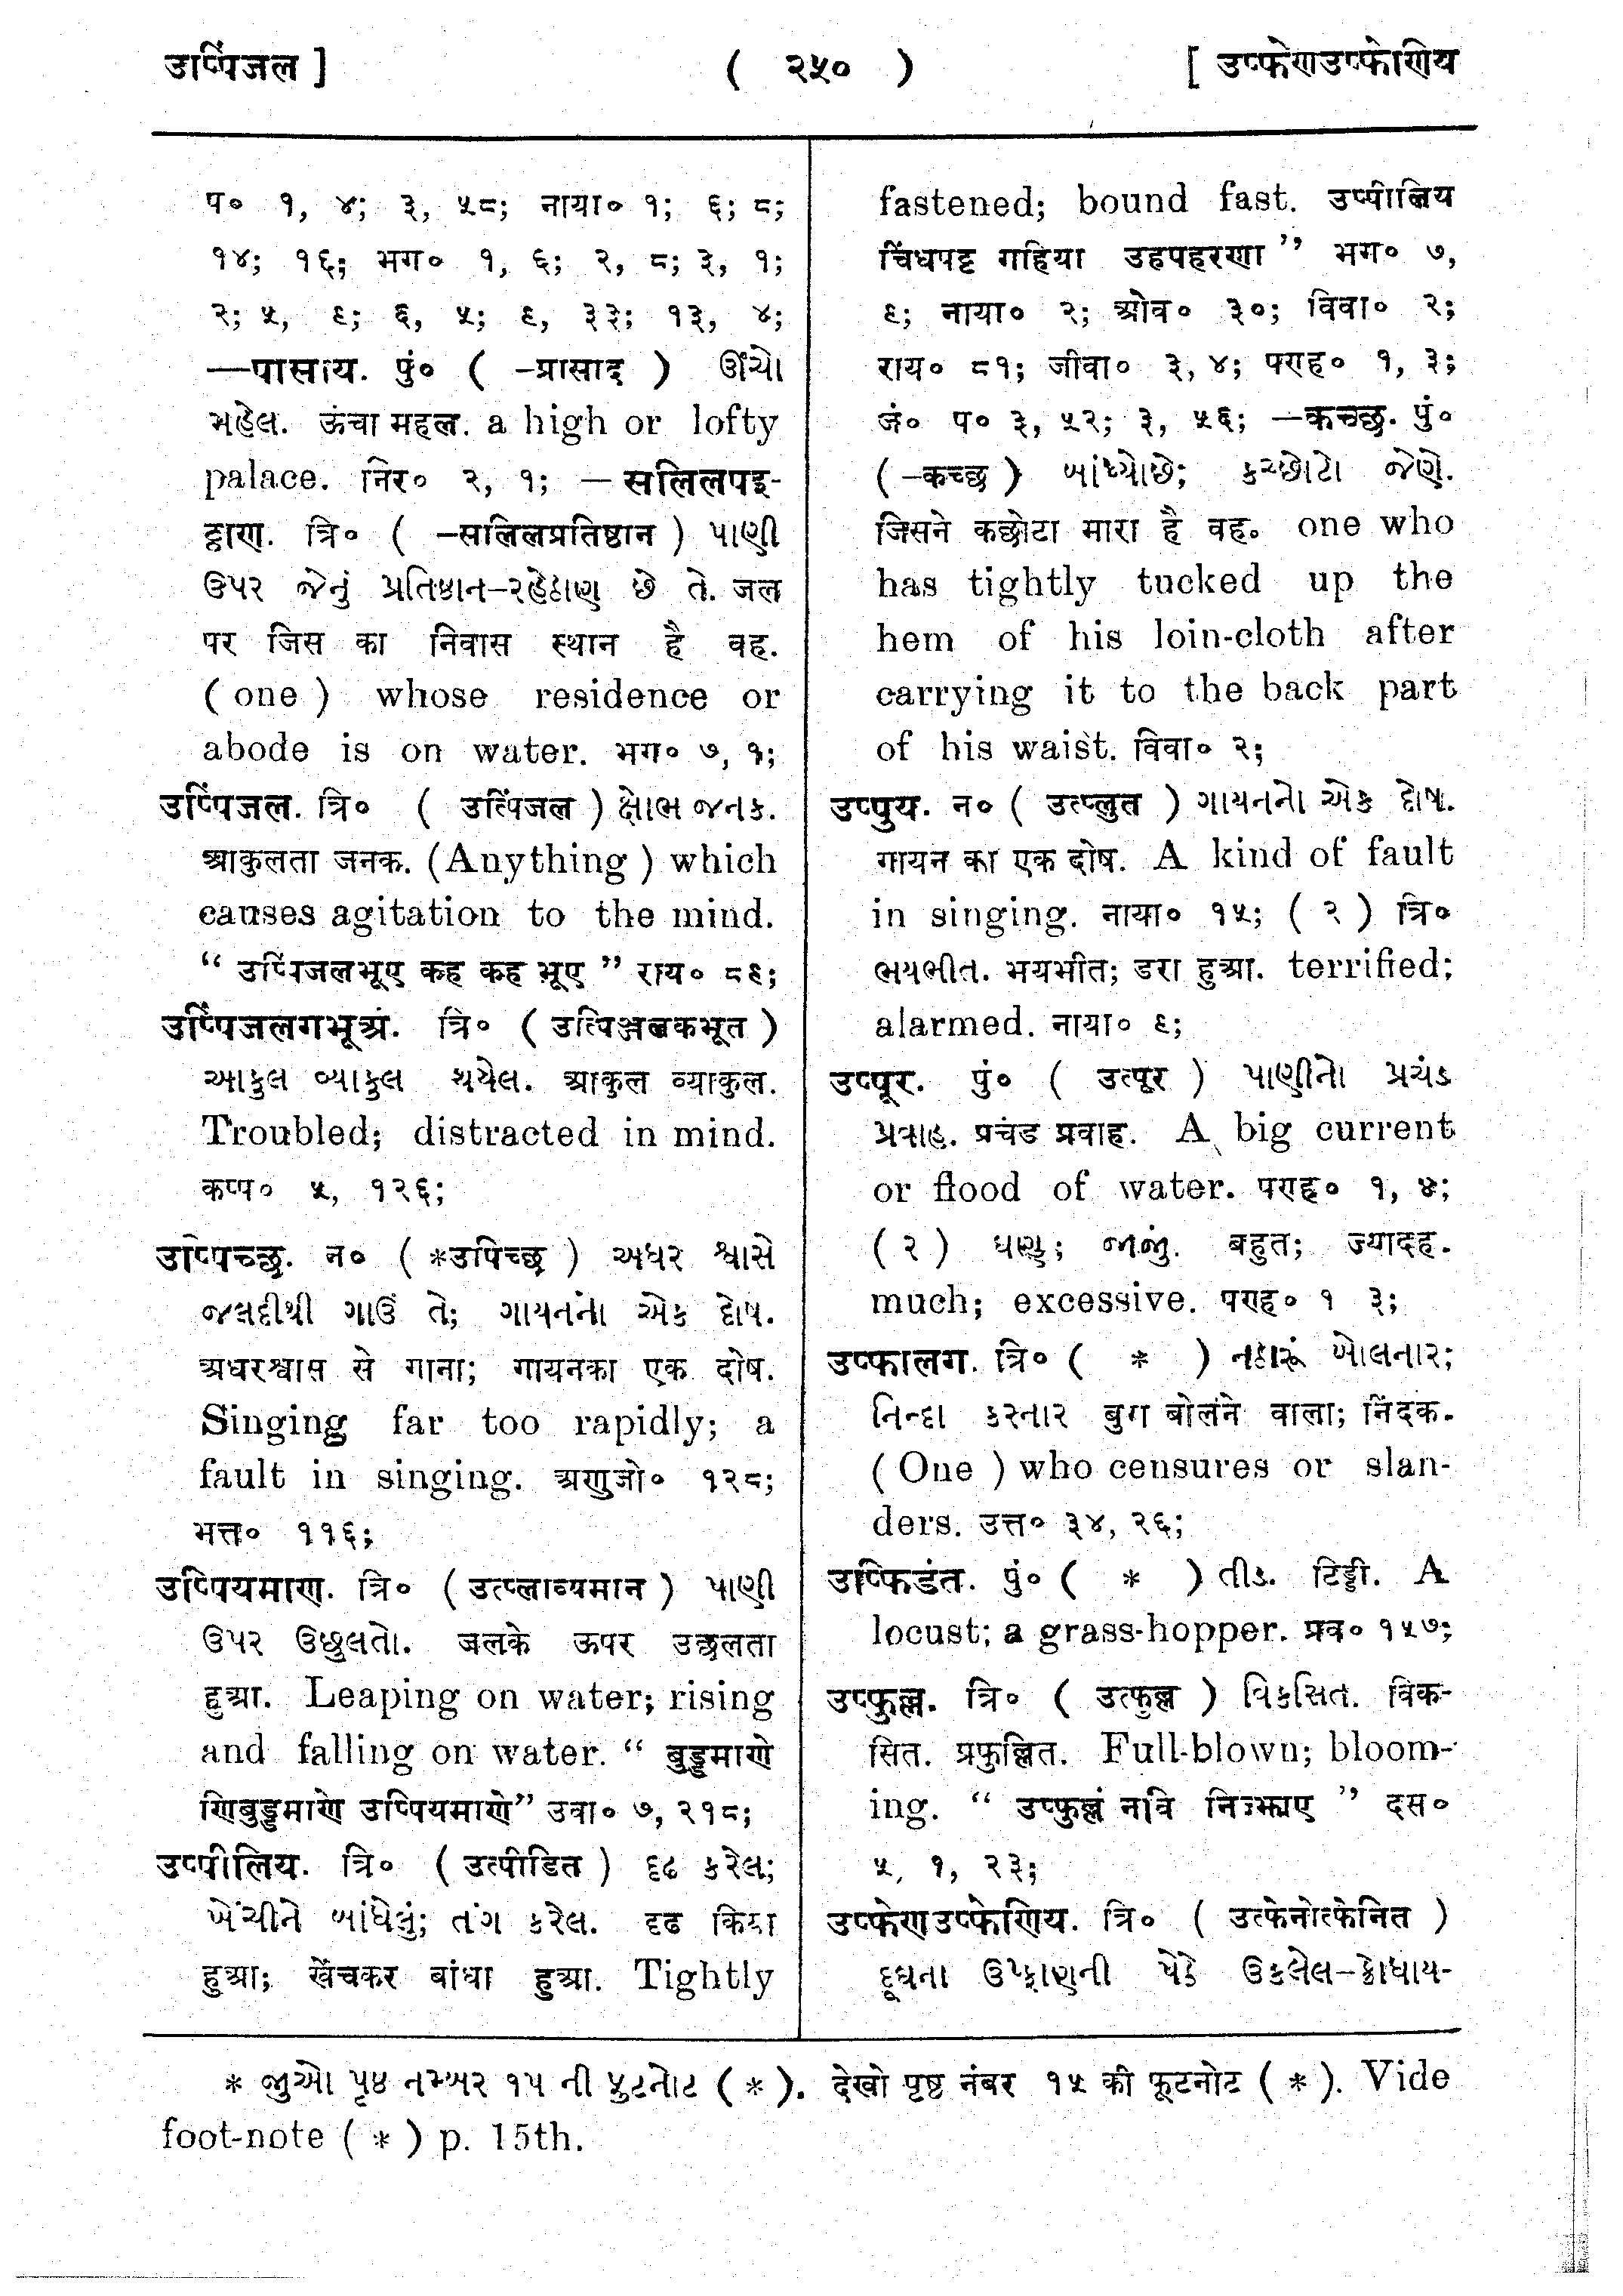 उप्पिंजल ]
( २५० )
[ उप्फेणउप्फेणिय
प० १, ४; ३, ५८; नाया० १; ६; ८;
१४; १६; भग० १, ६; २, ८; ३, १;
२; ५, ६; ६, ५; ६, ३३; १३, ४;
—पासाय. पुं० ( -प्रासाद ) ઊંચો
મહેલ. ऊंचा महल. a high or lofty
palace. निर० २, १; —सलिलपइ-
ट्ठाण. त्रि० ( -सलिलप्रतिष्ठान ) પાણી
ઉપર જેનું પ્રતિષ્ઠાન-રહેઠાણ છે તે. जल
पर जिस का निवास स्थान है वह.
( one ) whose residence or
abode is on water. भग० ७, १;
उप्पिंजल. त्रि० ( उत्पिंजल ) ક્ષોભ જનક.
आकुलता जनक. (Anything ) which
causes agitation to the mind.
“ उप्पिंजलभूए कह कह भूए ” राय० ८६;
उप्पिंजलगभूअं. त्रि० ( उत्पिञ्जलकभूत )
આકુલ વ્યાકુલ થયેલ. आकुल व्याकुल.
Troubled; distracted in mind.
कप्प० ५, १२६;
उप्पिच्छ. न० ( *उपिच्छ ) અધર શ્વાસે
જલદીથી ગાઉં તે; ગાયનનો એક દોષ.
अधरश्वास से गाना; गायनका एक दोष.
Singing far too rapidly; a
fault in singing. अणुजो० १२८;
भत्त० ११६;
उप्पियमाण. त्रि० ( उत्प्लाव्यमान ) પાણી
ઉપર ઉછુલતો. जलके ऊपर उछलता
हुआ. Leaping on water; rising
and falling on water. “ बुड्डमाणे
णिबुड्डमाणे उप्पियमाणे” उवा० ७, २१८;
उप्पीलिय. त्रि० ( उत्पीडित ) દૃઢ કરેલ;
ખેંચીને બાંધેલું; તંગ કરેલ. दृढ किया
हुआ; खेंचकर बांधा हुआ. Tightly
fastened; bound fast. उप्पीलिय
चिंधपट्ट गहिया उहपहरणा ” भग० ७,
६; नाया० २; ओव० ३०; विवा० २;
राय० ८१; जीवा० ३, ४; पण्ह० १, ३;
जं० प० ३, ५२; ३, ५६; —कच्छ. पुं०
( -कच्छ ) બાંધ્યોછે; કચ્છોટો જેણે.
जिसने कछोटा मारा है वह. one who
has tightly tucked up the
hem of his loin-cloth after
carrying it to the back part
of his waist. विवा० २;
उप्पुय. न० ( उत्प्लुत ) ગાયનનો એક દોષ.
गायन का एक दोष. A kind of fault
in singing. नाया० १५; ( २ ) त्रि०
ભયભીત. भयभीत; डरा हुआ. terrified;
alarmed. नाया० ६;
उप्पूर. पुं० ( उत्पूर ) પાણીનો પ્રચંડ
પ્રવાહ. प्रचंड प्रवाह. A big current
or flood of water. पण्ह० १, ४;
( २ ) ઘણુ; જાજું. बहुत; ज्यादह.
much; excessive. पण्ह० १ ३;
उप्फालग. त्रि० ( * ) નઠારૂં બોલનાર;
નિન્દા કરનાર बुरा बोलने वाला; निंदक.
( One ) who censures or slan-
ders. उत्त० ३४, २६;
उप्फिडंत. पुं० ( * ) તીડ. टिड्डी. A
locust; a grass-hopper. प्रव० १५७;
उप्फुल्ल. त्रि० ( उत्फुल्ल ) વિકસિત. विक-
सित. प्रफुल्लित. Full-blown; bloom-
ing. “ उप्फुल्लं नवि निज्झाए ” दस०
५, १, २३;
उप्फेणउप्फेणिय. त्रि० ( उत्फेनोत्फेनित )
દૂધના ઉફાણની પેઠે ઉકલેલ-ક્રોધાય-
* જુઓ પૃષ્ઠ નમ્બર ૧૫ ની ફુટનોટ ( * ). देखो पृष्ठ नंबर १५ की फूटनोट ( * ). Vide
foot-note ( * ) p. 15th.